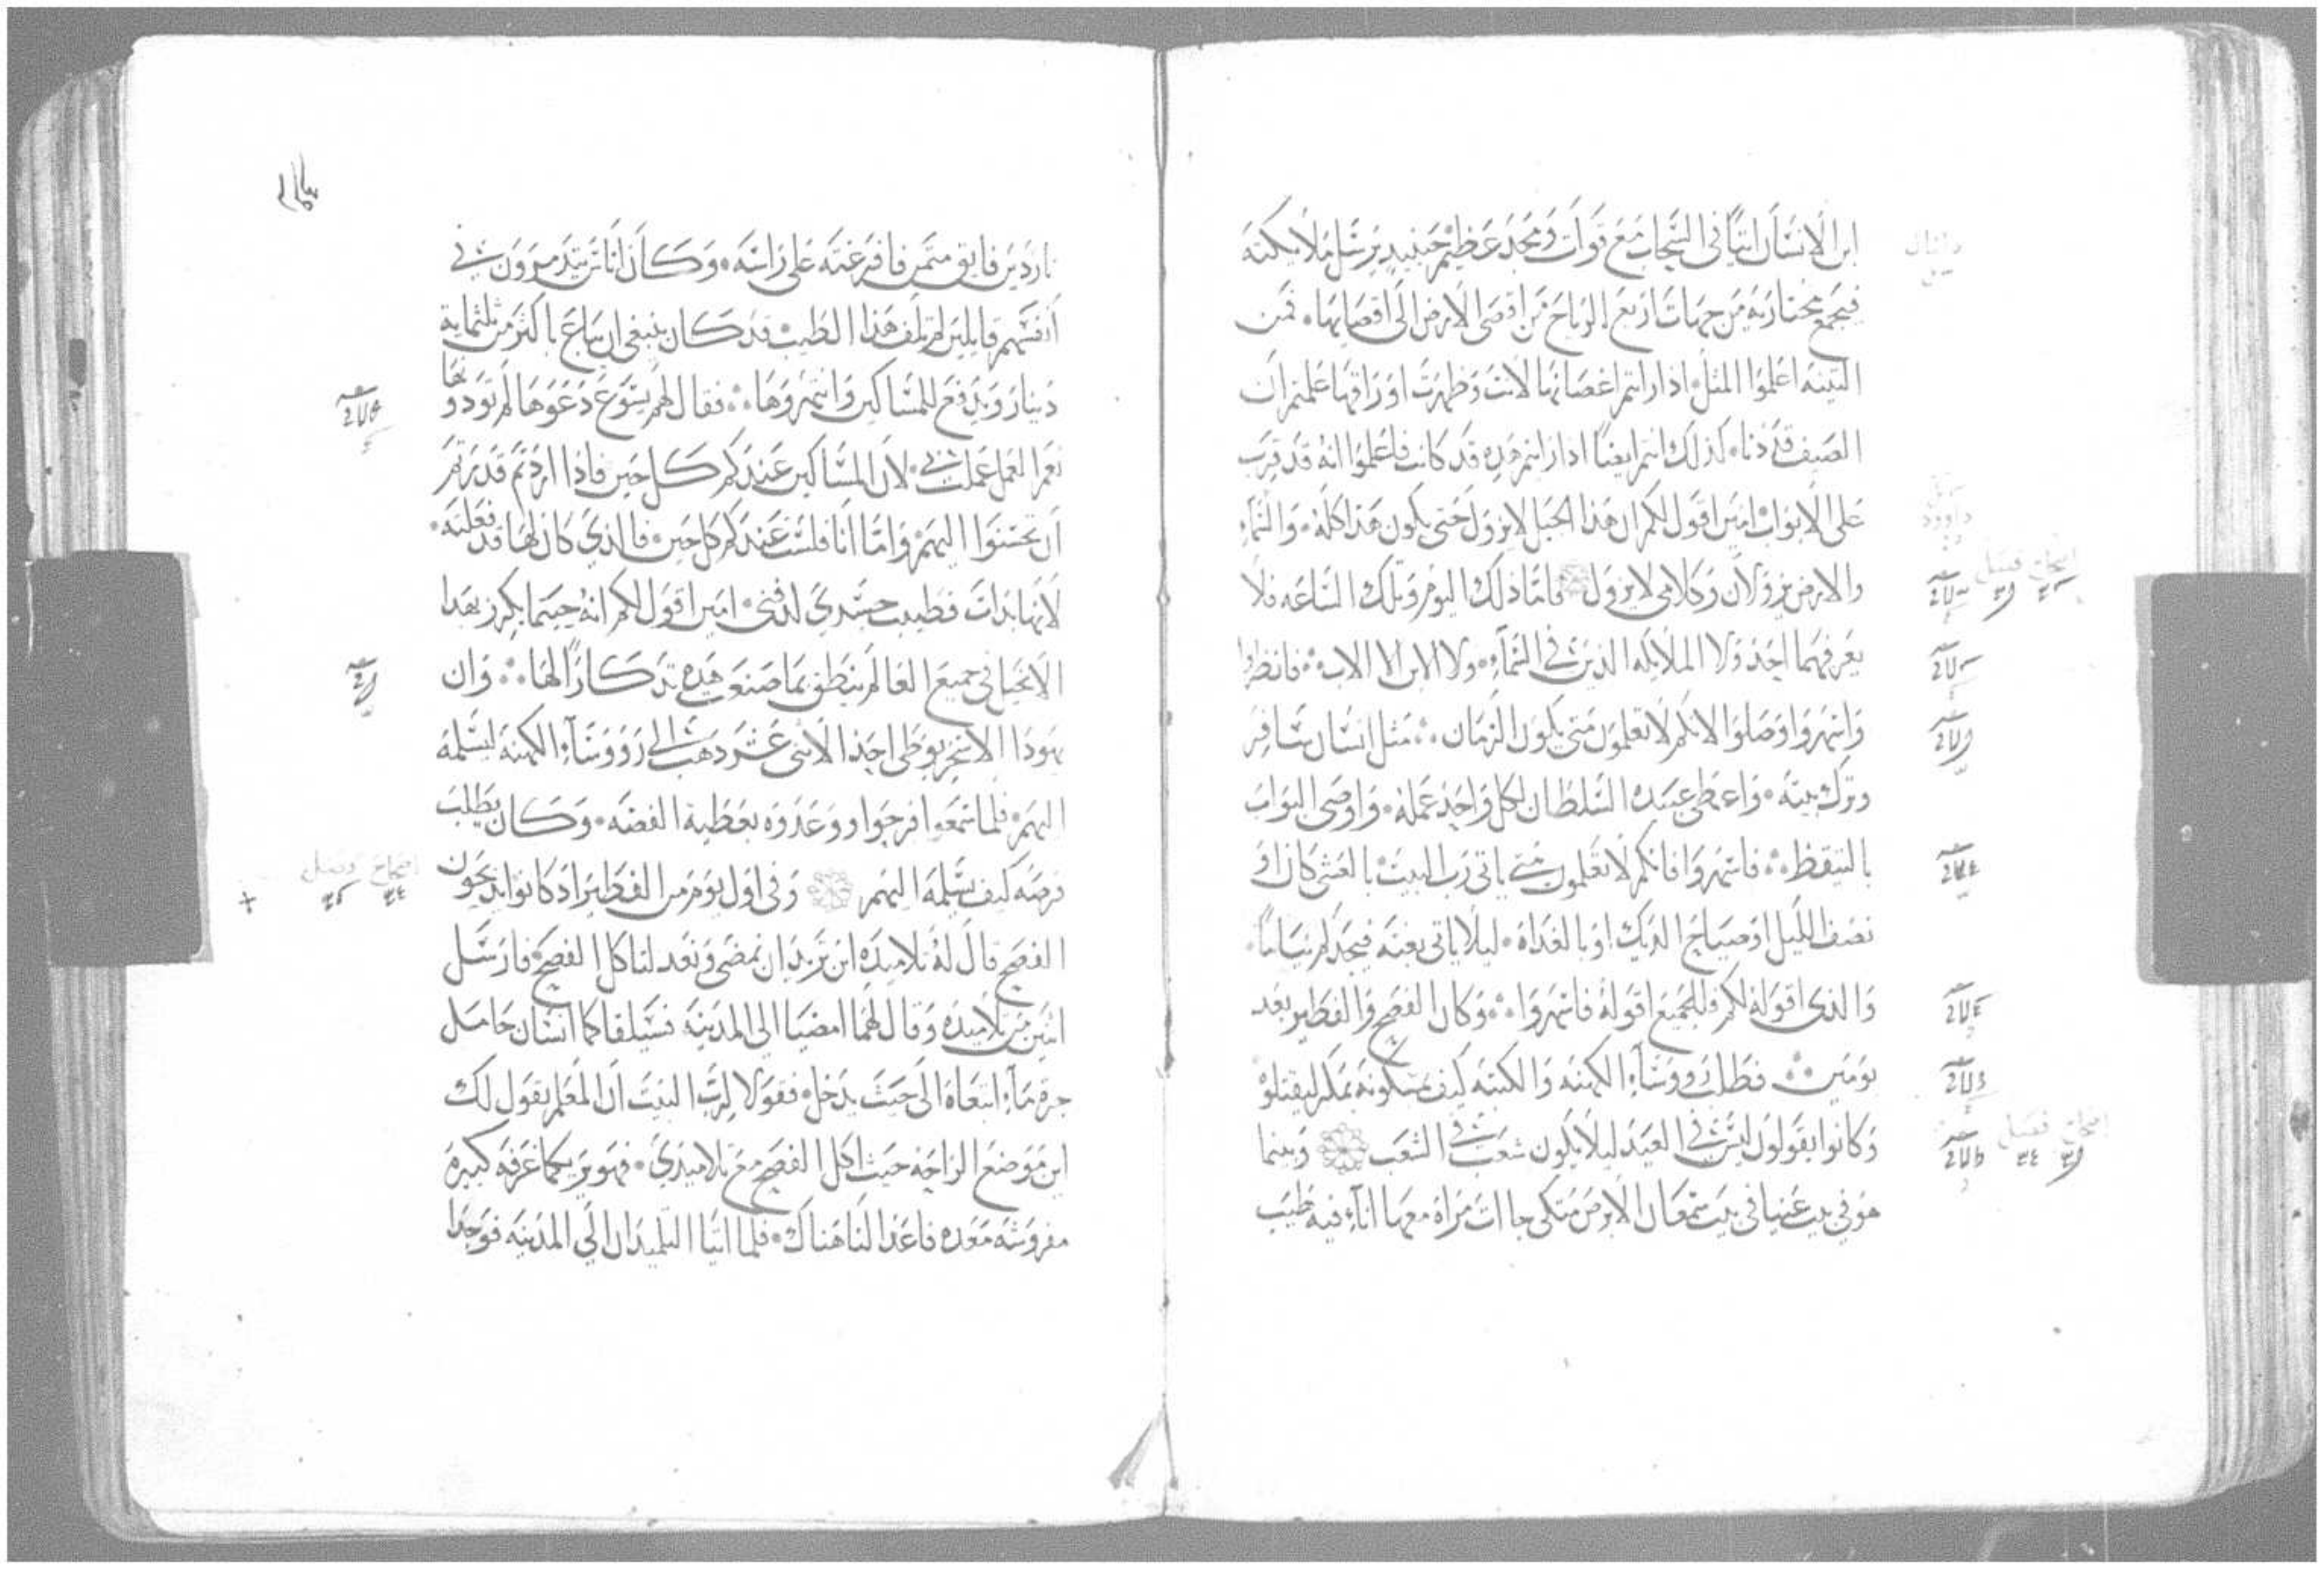 ابن الانسان اتيًا في السحاب مع قوات ومجد عظيم حينيد يرسل ملايكته
فيجمع مختاريه من جهات اربع الرياح من اقصى الارض الى اقصايها. فمن
التينه اعلموا المثل اذا رايتم اغصانها لانت وظهرت اوراقها علمتم ان
الصيف قد دنا. كذلك انتم ايضًا اذا رايتم هذه قد كانت فاعلموا انه قد قرب
على الابواب امين اقول لكم ان هذا الجيل لا يزول حتى يكون هذا كله. والسماء
والارض يزولان وكلامي لا يزول فاما ذلك اليوم وتلك الساعه فلا
يعرفهما احد ولا الملايكه الذين في السماء. ولا الابن الا الاب. فانظروا
واسهروا وصلوا لانكم لا تعلمون متى يكون الزمان. مثل انسان سافر
وترك بيته. واعطى عبيده السلطان لكل واحد عمله. واوصى البواب
بالتيقظ. فاسهروا فانكم لا تعلمون متى ياتي رب البيت بالعشي كان او
نصف الليل او صياح الديك او بالغداة. ليلا ياتي بغته فيجدكم نيامًا.
والذي اقوله لكم فللجميع اقوله فاسهروا. وكان الفصح والفطير بعد
يومين. فطلب رووساء الكهنه والكتبه كيف يمسكونه بمكر ليقتلوه
وكانوا يقولون ليس في العيد ليلا يكون شعب في الشعب وبينما
هو في بيت عنيا في بيت سمعان الابرص متكي جاات مراة معها اناء فيه طيب
ناردين فايق متمن فافرغته على راسه. وكان اناس يتذمرون في
انفسهم قايلين لم تلف هذا الطيب قد كان ينبغي ان يباع باكثر من ثلثماية
دينار ويدفع للمساكين وانتهروها. فقال لهم يسوع دعوها لم توذونها
نعم العمل عملت بي. لان المساكين عندكم كل حين فاذا اردتم قدرتم
ان تحسنوا اليهم واما انا فلست عندكم كل حين. فالذي كان لها قد فعلته.
لانها بدات فطيبت جسدي لدفني. امين اقول لكم انه حيتما يكرز بهذا
الانجيل في جميع العالم ينطق بما صنعت هذه تذكارًا لها. وان
يهودا الاسخريوطي احد الاثنى عشر ذهب الى رووساء الكهنه ليسلمه
اليهم. فلما سمعوا فرحوا ووعدوه بعطية الفضه. وكان يطلب
فرصه كيف يسلمه اليهم وفي اول يوم من الفطير اذ كانوا يذبحون
الفصح قال له تلاميذه اين تريد ان نمضي ونعد لتاكل الفصح. فارسل
اثنين من تلاميذه وقال لهما امضيا الى المدينه فسيلقاكما انسان حامل
جرة ماء اتبعاه الى حيث يدخل فقولا لرب البيت ان المعلم يقول لك
اين موضع الراحه حيث اكل الفصح مع تلاميذي. فهو يريكما غرفه كبيره
مفروشه معده فاعدا لنا هناك. فلما اتيا التلميذان الى المدينه فوجدا